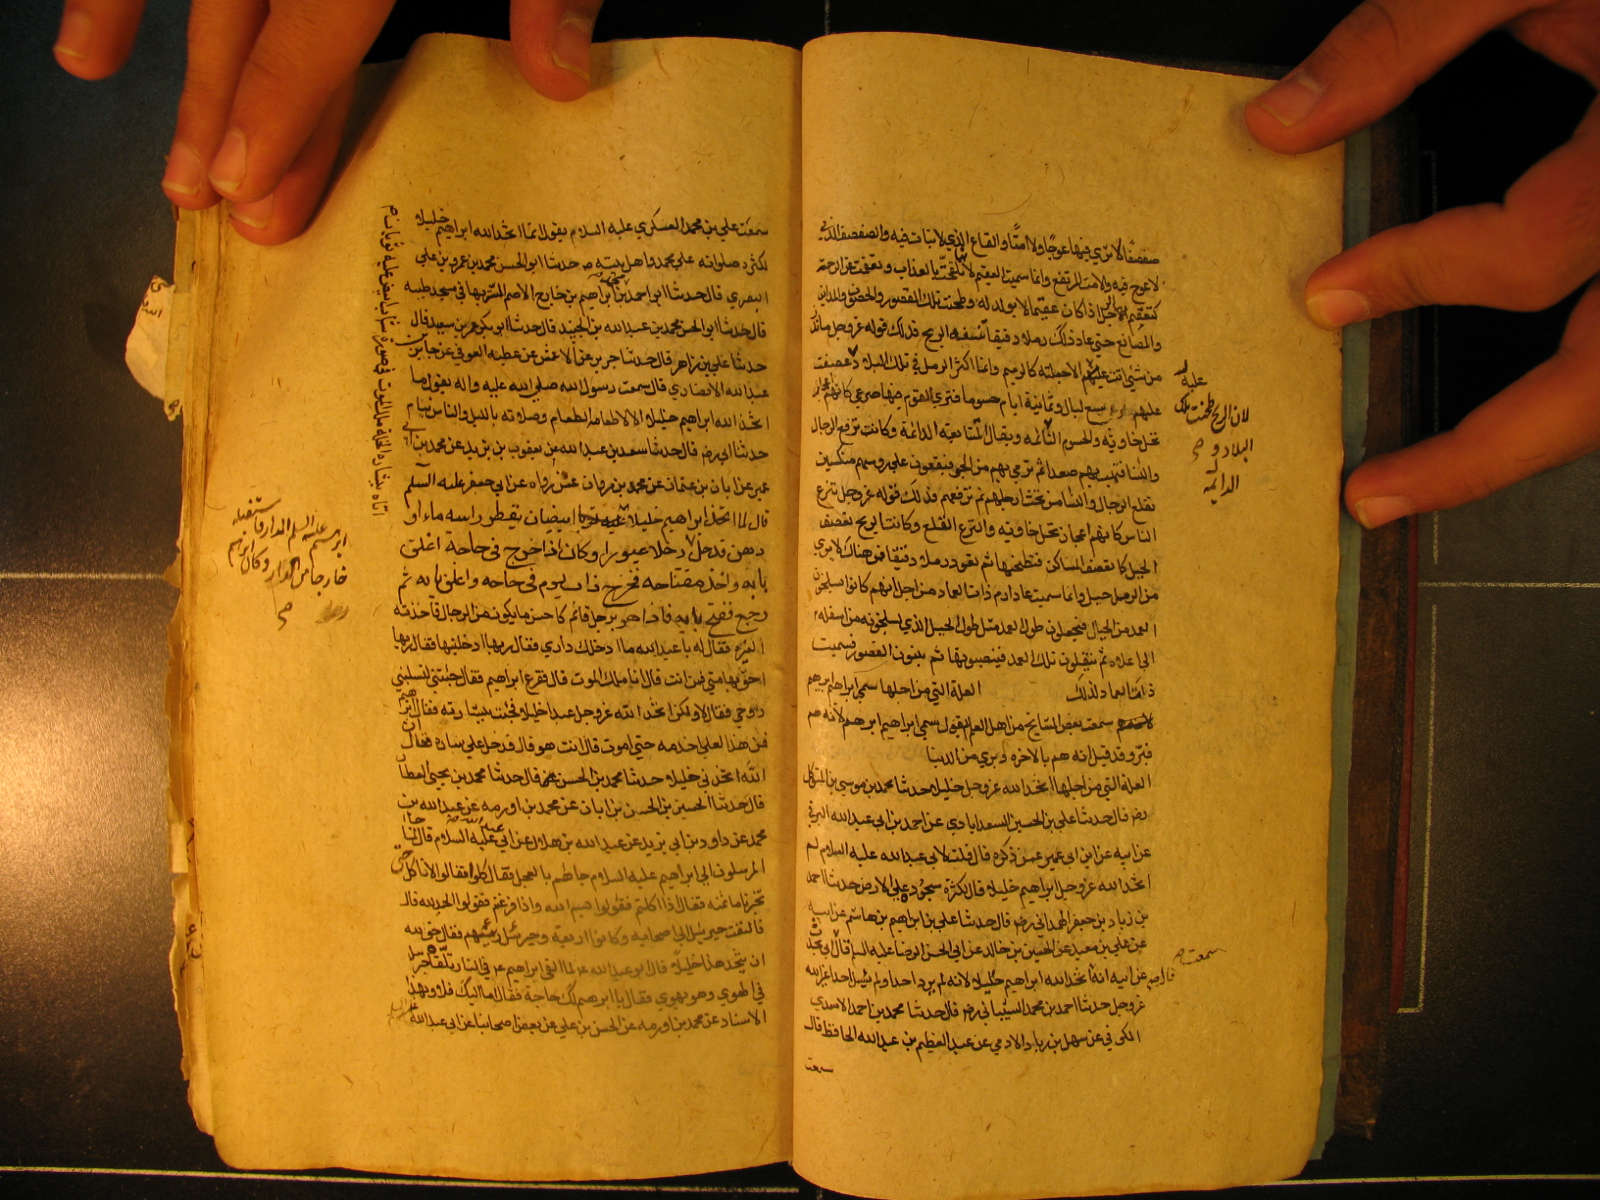 صفصفًا لا ترى فيها عوجًا ولا امتًا والقاع الذي لا نبات فيه والصفصف الذي
لا عوج فيه والامت المرتفع وانما سميت العقيم لانها تلقحت بالعذاب وتعقمت عن الرحمة
كتعقم الرجل اذا كان عقيما لا يولد له وطحنت تلك القصور والحصون والمداين
والمصانع حتى عاد ذلك رملا دقيقا تسفيه الريح فذلك قوله عز وجل ما تذر
من شيء اتت عليه الا جعلته كالرميم وانما اكثر الرمل في تلك البلاد
عليهم سبع ليال وثمانية ايام حسوما فترى القوم فيها صرعى كانهم اعجاز
نخل خاوية والحسوم الدائمة ويقال المتتابعة الدائمة وكانت ترفع الرجال
والنساء فتهب بهم صعدا ثم ترمي بهم من الجو فيقعون على رؤسهم منكسين
تقلع الرجال والنساء من تحت ارجلهم ثم ترفعهم فذلك قوله عز وجل تنزع
الناس كانهم اعجاز نخل خاوية والنزع القلع وكانت الريح تقصف
الجبل كما تقصف المساكن فتطحنها ثم تعود رملا دقيقا فمن هناك لا يرى
من الرمل جبل وانما سميت عاد ارم ذات العماد من اجل انهم كانوا يسلخون
العمد من الجبال فيجعلون طول العمد مثل طول الجبل الذي يسلخونه من اسفله
الى اعلاه ثم ينقلون تلك العمد فينصبونها ثم يبنون القصور فسميت
ذات العماد لذلك العلة التي من اجلها سمي ابراهيم ابرهيم
سمعت بعض المشايخ من اهل العلم يقول سمي ابراهيم ابرهيم لانه هم
فبر وقد قيل انه هم بالاخرة وبرئ من الدنيا
العلة التي من اجلها اتخذ الله عز وجل ابراهيم خليلا حدثنا محمد بن موسى بن المتوكل
رض قال حدثنا علي بن الحسين السعدابادي عن احمد بن ابي عبد الله البرقي
عن ابيه عن ابن ابي عمير عمن ذكره قال قلت لابي عبد الله عليه السلام لم
اتخذ الله عز وجل ابراهيم خليلا قال لكثرة سجوده على الارض حدثنا احمد
بن زياد بن جعفر الهمداني رض قال حدثنا علي بن ابراهيم بن هاشم عن ابيه
عن علي بن معبد عن الحسين بن خالد عن ابي الحسن الرضا عليه السلم قال
عن ابيه انه اتخذ الله ابراهيم خليلا لانه لم يرد احدا ولم يسئل احدا غير الله
عز وجل حدثنا احمد بن محمد الشيباني رض قال حدثنا محمد بن احمد الاسدي
الكوفي عن سهل بن زياد الادمي عن عبد العظيم بن عبد الله الحافظ قال
سمعت
عليه
لان الريح طحنت تلك
البلاد و
الدائمة
سمعت
سمعت علي بن محمد العسكري عليه السلام يقول انما اتخذ الله ابراهيم خليلا
لكثرة صلواته على محمد واهل بيته حدثنا ابو الحسن محمد بن عمرو بن علي
البصري قال حدثنا ابو احمد بن ابراهيم بن خارج الاصم البستي بها في مسجد طيبة
قال حدثنا ابو الحسن محمد بن عبد الله بن الجنيد قال حدثنا ابو بكر عمرو بن سعيد قال
حدثنا علي بن زاهر قال حدثنا جرير عن الاعمش عن عطية العوفي عن جابر بن
عبد الله الانصاري قال سمعت رسول الله صلى الله عليه واله يقول ما
اتخذ الله ابراهيم خليلا الا لاطعامه الطعام وصلاته بالليل والناس نيام
حدثنا ابي رض قال حدثنا سعد بن عبد الله عن يعقوب بن يزيد عن محمد بن ابي
عمير عن ابان بن عثمان عن محمد بن مروان عمن رواه عن ابي جعفر عليه السلم
قال لما اتخذ ابراهيم خليلا ابيضان يقطر راسه ماء او
دهن فدخل رجلا غيورا وكان اذا خرج في حاجة اغلق
بابه واخذ مفتاحه فخرج ذات يوم في حاجة واغلق بابه ثم
رجع ففتح بابه فاذا هو برجل قائم كاحسن ما يكون من الرجال فاخذته
الغيرة فقال له يا عبد الله ما ادخلك داري فقال ربها ادخلنيها فقال ربها
احق بها مني فمن انت قال انا ملك الموت قال ففزع ابراهيم فقال جئتني لتسلبني
روحي فقال لا ولكن اتخذ الله عز وجل عبدا خليلا فجئت ببشارته فقال ابراهيم
فمن هذا لعلي اخدمه حتى اموت قال انت هو قال فدخل على سارة فقال ان
الله اتخذني خليلا حدثنا محمد بن الحسن قال حدثنا محمد بن يحيى العطار
قال حدثنا الحسين بن الحسن بن ابان عن محمد بن اورمه عن عبد الله بن
محمد عن داود بن ابي يزيد عن عبد الله بن هلال عن ابي عليه السلام قال لما
المرسلون الى ابراهيم عليه السلام جاءهم بالعجل فقال كلوا فقالوا لا ناكل حتى
تخبرنا ما ثمنه فقال اذا اكلتم فقولوا بسم الله واذا فرغتم فقولوا الحمد لله قال
فالتفت جبرئيل الى اصحابه وكانوا اربعة وجبرئيل رئيسهم فقال حق لله
ان يتخذ هذا خليلا قال ابو عبد الله لما القي ابراهيم في النار تلقاه جبرئيل
في الهوى وهو يهوي فقال يا ابرهيم لك حاجة فقال اما اليك فلا وبهذا
الاسناد عن محمد بن اورمه عن الحسن بن علي عن بعض اصحابنا عن ابي عبد الله
اتاه ببشارة الخلة ملك الموت في صورة شاب ابيض عليه ثوبان
ابرهيم عليه السلم الدار فاستقبله
خارجا من الدار وكان ابرهيم